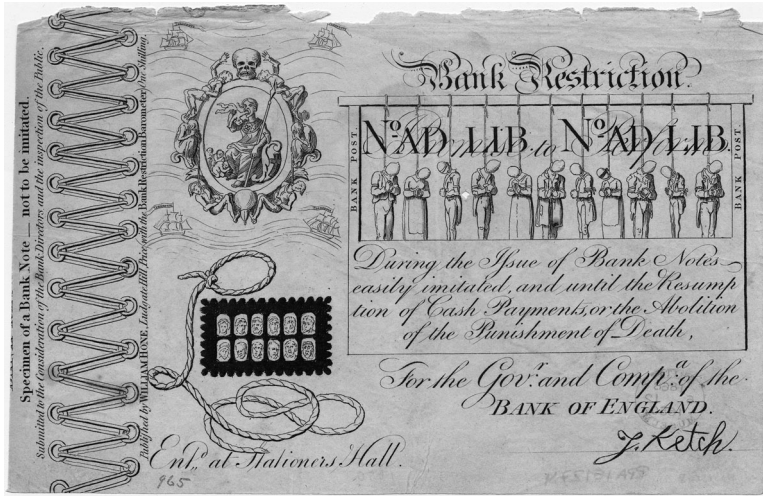 Specimen of a Bank Note — not to be imitated.
Submitted to the Consideration of the Bank Directors and the inspection of the Public.
Published by WILLIAM HONE, Ludgate Hill, Price, with the Bank Restriction Barometer, One Shilling.
Bank Restriction.
BANK POST.
No. AD. LIB. to No. AD. LIB.
BANK POST.
During the Issue of Bank Notes
easily imitated, and until the Resump
tion of Cash Payments, or the Abolition
of the Punishment of Death,
For the Govr. and Compa. of the
BANK OF ENGLAND.
J. Ketch.
Entd. at Stationers Hall.
965